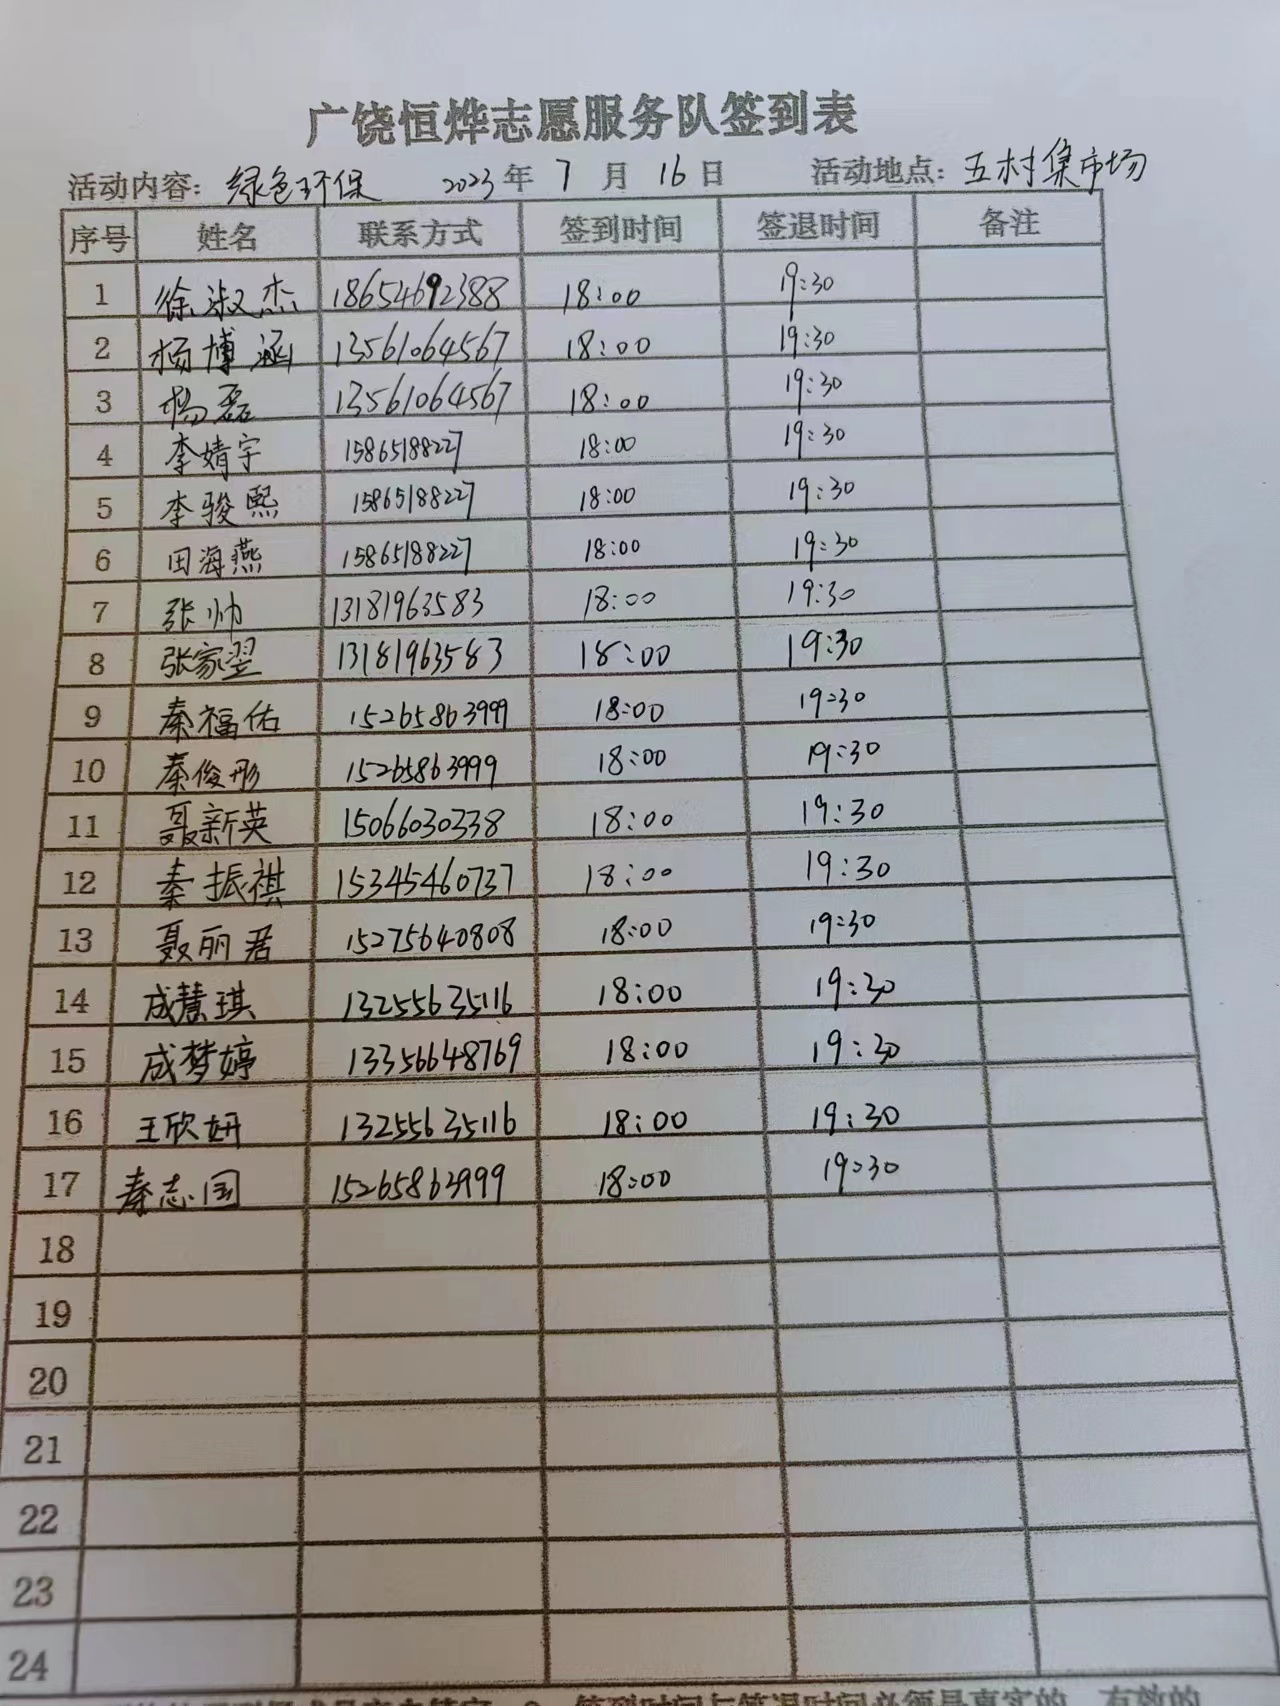 广饶恒烨志愿服务队签到表
活动内容：绿色环保 2023年 7 月 16 日 活动地点：五村集市场
序号 姓名 联系方式 签到时间 签退时间 备注
1 徐淑杰 18654692388 18:00 19:30
2 杨博涵 13561064567 18:00 19:30
3 杨磊 13561064567 18:00 19:30
4 李婧宇 15865188227 18:00 19:30
5 李骏熙 15865188227 18:00 19:30
6 田海燕 15865188227 18:00 19:30
7 张帅 13181963583 18:00 19:30
8 张家翌 13181963583 18:00 19:30
9 秦福佑 15265863999 18:00 19:30
10 秦俊彤 15265863999 18:00 19:30
11 聂新英 15066030338 18:00 19:30
12 秦振祺 15345460737 18:00 19:30
13 聂丽君 15275640808 18:00 19:30
14 成慧琪 13255635116 18:00 19:30
15 成梦婷 13356648769 18:00 19:30
16 王欣妍 13255635116 18:00 19:30
17 秦志国 15265863999 18:00 19:30
18
19
20
21
22
23
24
签到时间与签退时间必须是真实的、有效的